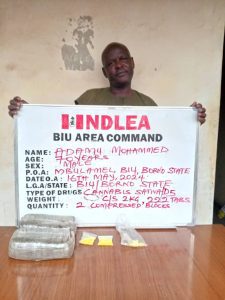 NDLEA
BIU AREA COMMAND
NAME: ADAMU MOHAMMED
AGE: 70 YEARS
SEX: MALE
P.O.A: MBULAMEL, BIU, BORNO STATE
DATE O.A: 16TH MAY, 2024
L.G.A/STATE: BIU/BORNO STATE
TYPE OF DRUGS: CANNABIS SATIVA/D5
WEIGHT: C/S 2KG, 222 TABS
QUANTITY: 2 COMPRESSED BLOCKS